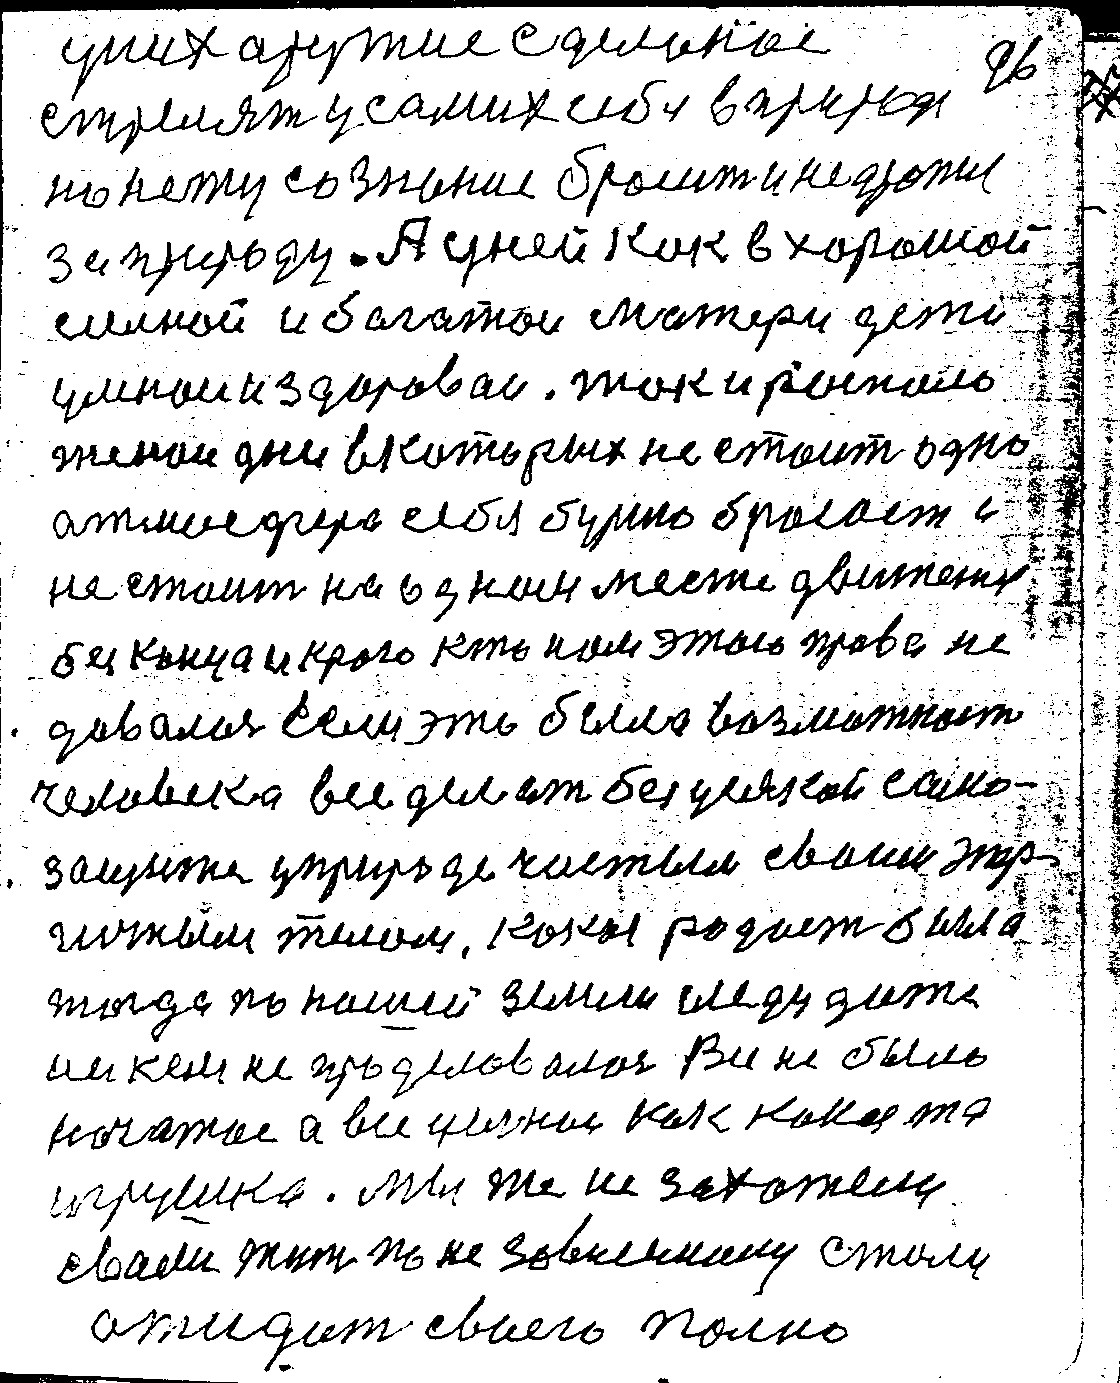 уних аружие сделоное
96
стрелят у самих себя вприроди
но нету сознание броситинедрожи
заприроду. А уней как вхорошой
силной и богатои матери дети
умнои и здороваи. так и располо
женои дни вкоторых не стоит одно
атмосфера себя бурно бросает и
не стоит на одном месте движения
без конца и краю кто нам этого право не
довалоя Если это была возможност
человека все делат безусякой само-
защита уприроде частям своим энер-
гичным телом, какая радост была
тогда по нашей земли следу даже
ни кем не проделовалоя Все не было
начатое а все целное как какая то
игрушка. мы же не захотели
сваем тут по не зависимому стали
ажидат своего полно